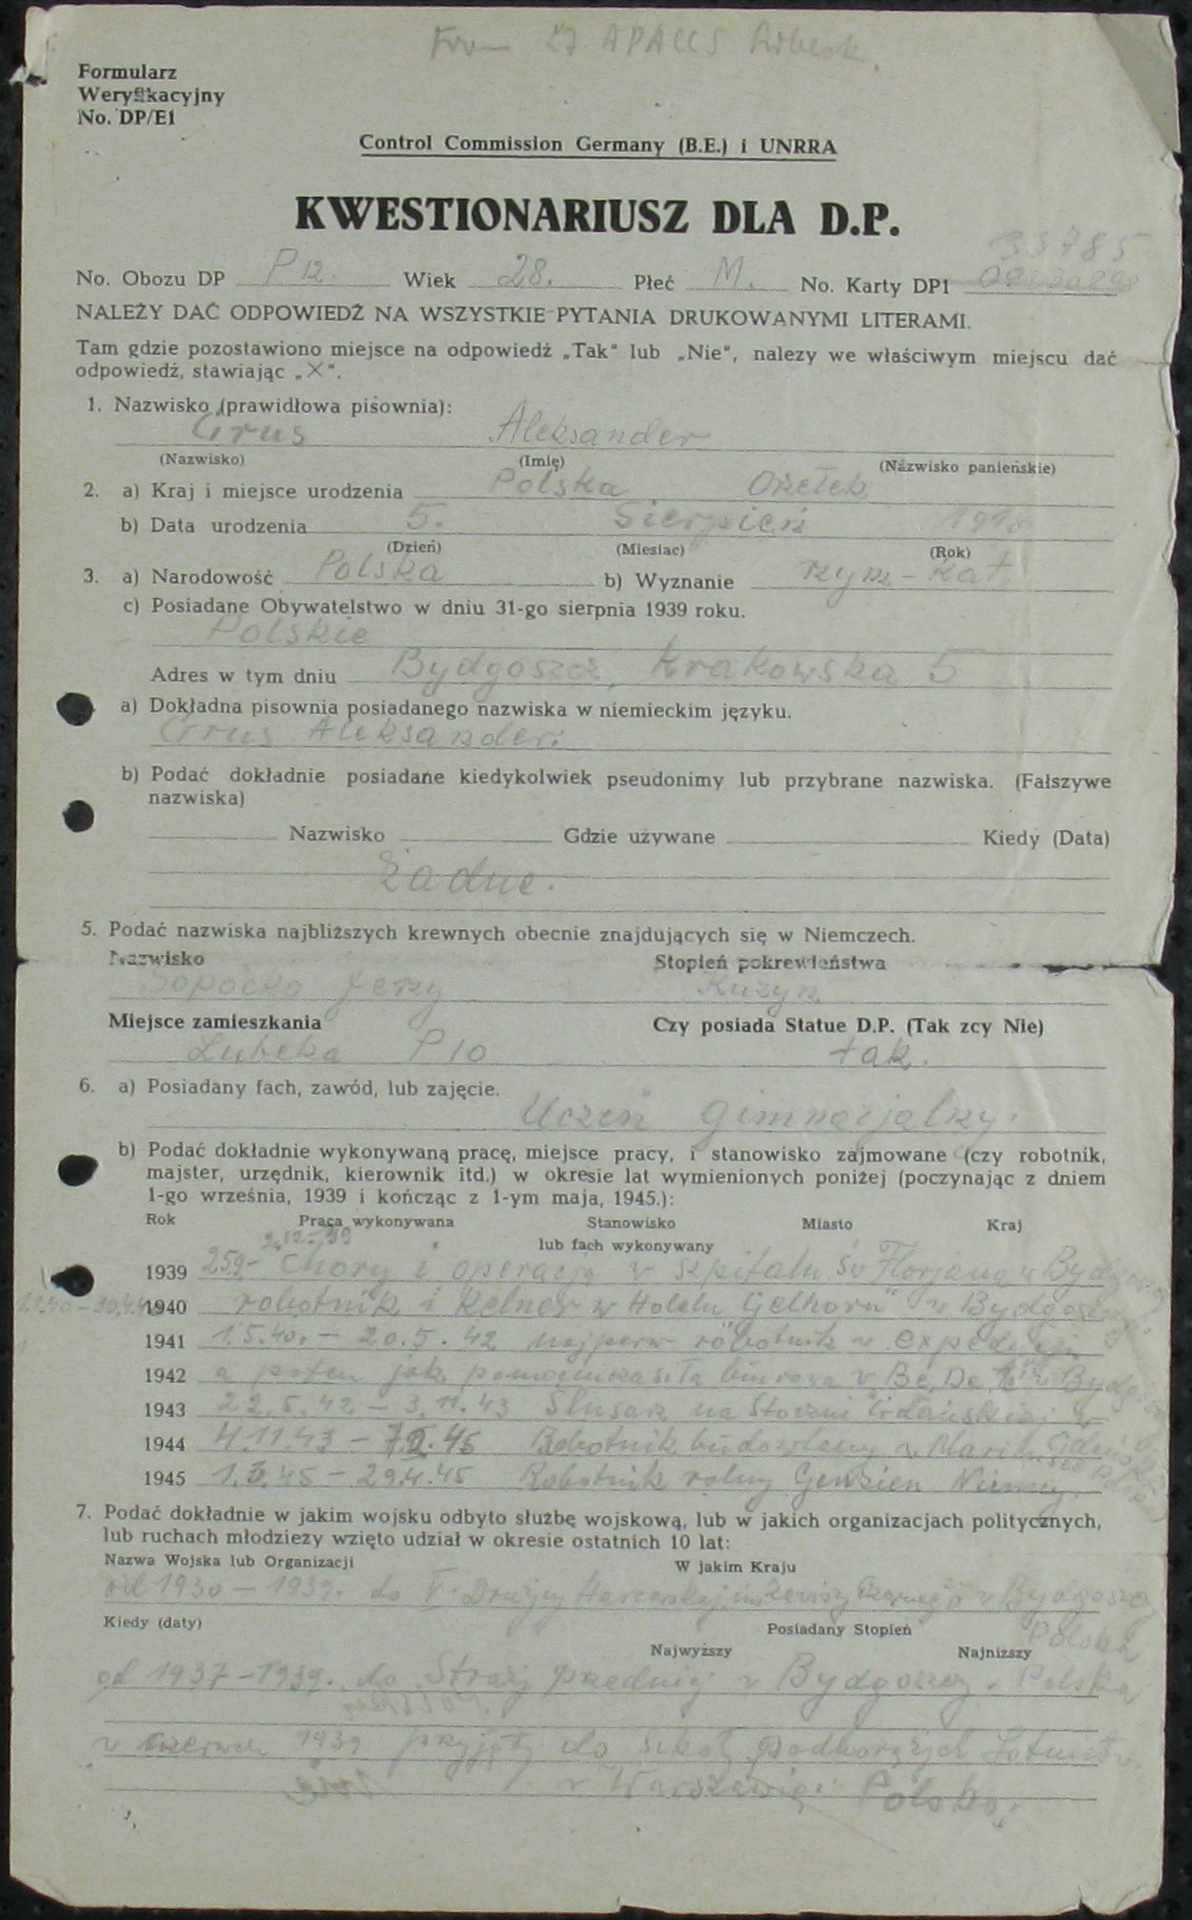 From 27 APACCS Lübeck.
Formularz
Weryfikacyjny
No. DP/E1
Control Commission Germany (B.E.) i UNRRA
KWESTIONARIUSZ DLA D.P.
33785
No. Obozu DP P12. Wiek 28. Płeć M. No. Karty DP1
NALEŻY DAĆ ODPOWIEDŹ NA WSZYSTKIE PYTANIA DRUKOWANYMI LITERAMI.
Tam gdzie pozostawiono miejsce na odpowiedź „Tak" lub „Nie", nalezy we właściwym miejscu dać
odpowiedź, stawiając „×".
1. Nazwisko (prawidłowa pisownia):
Grus Aleksander
(Nazwisko) (Imię) (Nazwisko panieńskie)
2. a) Kraj i miejsce urodzenia Polska Osełek
b) Data urodzenia 5. Sierpień 1918
(Dzień) (Miesiac) (Rok)
3. a) Narodowość Polska b) Wyznanie rzym-kat.
c) Posiadane Obywatelstwo w dniu 31-go sierpnia 1939 roku.
Polskie
Adres w tym dniu Bydgoszcz, Krakowska 5
a) Dokładna pisownia posiadanego nazwiska w niemieckim języku.
Grus Aleksander.
b) Podać dokładnie posiadane kiedykolwiek pseudonimy lub przybrane nazwiska. (Fałszywe
nazwiska)
Nazwisko Gdzie używane Kiedy (Data)
Żadne.
5. Podać nazwiska najbliższych krewnych obecnie znajdujących się w Niemczech.
Nazwisko Stopień pokrewieństwa
Sopoćko Jerzy Kuzyn
Miejsce zamieszkania Czy posiada Statue D.P. (Tak zcy Nie)
Lubeka P10 tak.
6. a) Posiadany fach, zawód, lub zajęcie.
Uczeń gimnazjalny.
b) Podać dokładnie wykonywaną pracę, miejsce pracy, i stanowisko zajmowane (czy robotnik,
majster, urzędnik, kierownik itd.) w okresie lat wymienionych poniżej (poczynając z dniem
1-go września, 1939 i kończąc z 1-ym maja, 1945.):
Rok Praca wykonywana Stanowisko Miasto Kraj
lub fach wykonywany
2.12.39
1939 25.9- Chory i operacja w szpitalu św Florjana w Bydgoszczy
1940 robotnik i Kelner w Hotelu „Gelhorn" w Bydgoszczy
1941 1.5.40. - 20.5.42 najpierw robotnik w expedycji
1942 a potem jak pomocnicza siła biurowa w Be. De. w Bydgoszczy
1943 22.5.42 - 3.11.43 Ślusarz na Stoczni Gdańskiej w
1944 4.11.43 - 45 Robotnik budowlany w
1945 1. 45 - 29.4.45 Robotnik rolny Niemcy.
7. Podać dokładnie w jakim wojsku odbyto służbę wojskową, lub w jakich organizacjach politycznych,
lub ruchach młodzieży wzięto udział w okresie ostatnich 10 lat:
Nazwa Wojska lub Organizacji W jakim Kraju
od 1930 - 1939. do V. Drużyny Harcerskiej im Zawiszy Czarnego w Bydgoszczy
Polska
Kiedy (daty) Posiadany Stopień
Najwyższy Najniższy
od 1937-1939. do Straży przedniej w Bydgoszczy. Polska
w czerwcu 1939 przyjęty do Szkoły podchorążych Lotnictwa
w Warszawie. Polska.